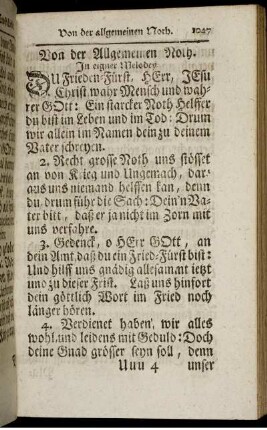 Von der allgemeinen Noth. 1047
Von der Allgemeinen Noth.
In eigner Melodey
DU Frieden-Fürst, HErr, JEsu
Christ, wahr Mensch und wah-
rer GOtt: Ein starcker Noth Helffer
du bist im Leben und im Tod: Drum
wir allein im Namen dein zu deinem
Vater schreyen.
2. Recht grosse Noth uns stösset
an von Krieg und Ungemach, dar-
aus uns niemand helffen kan, denn
du, drum führ die Sach: Dein'n Va-
ter bitt, daß er ja nicht im Zorn mit
uns verfahre.
3. Gedenck, o HErr GOtt, an
dein Amt, daß du ein Fried-Fürst bist:
Und hilff uns gnädig allesamant jetzt
und zu dieser Frist. Laß uns hinfort
dein göttlich Wort im Fried noch
länger hören.
4. Verdienet haben, wir alles
wohl, und leidens mit Geduld: Doch
deine Gnad grösser seyn soll, denn
Uuu 4 unser